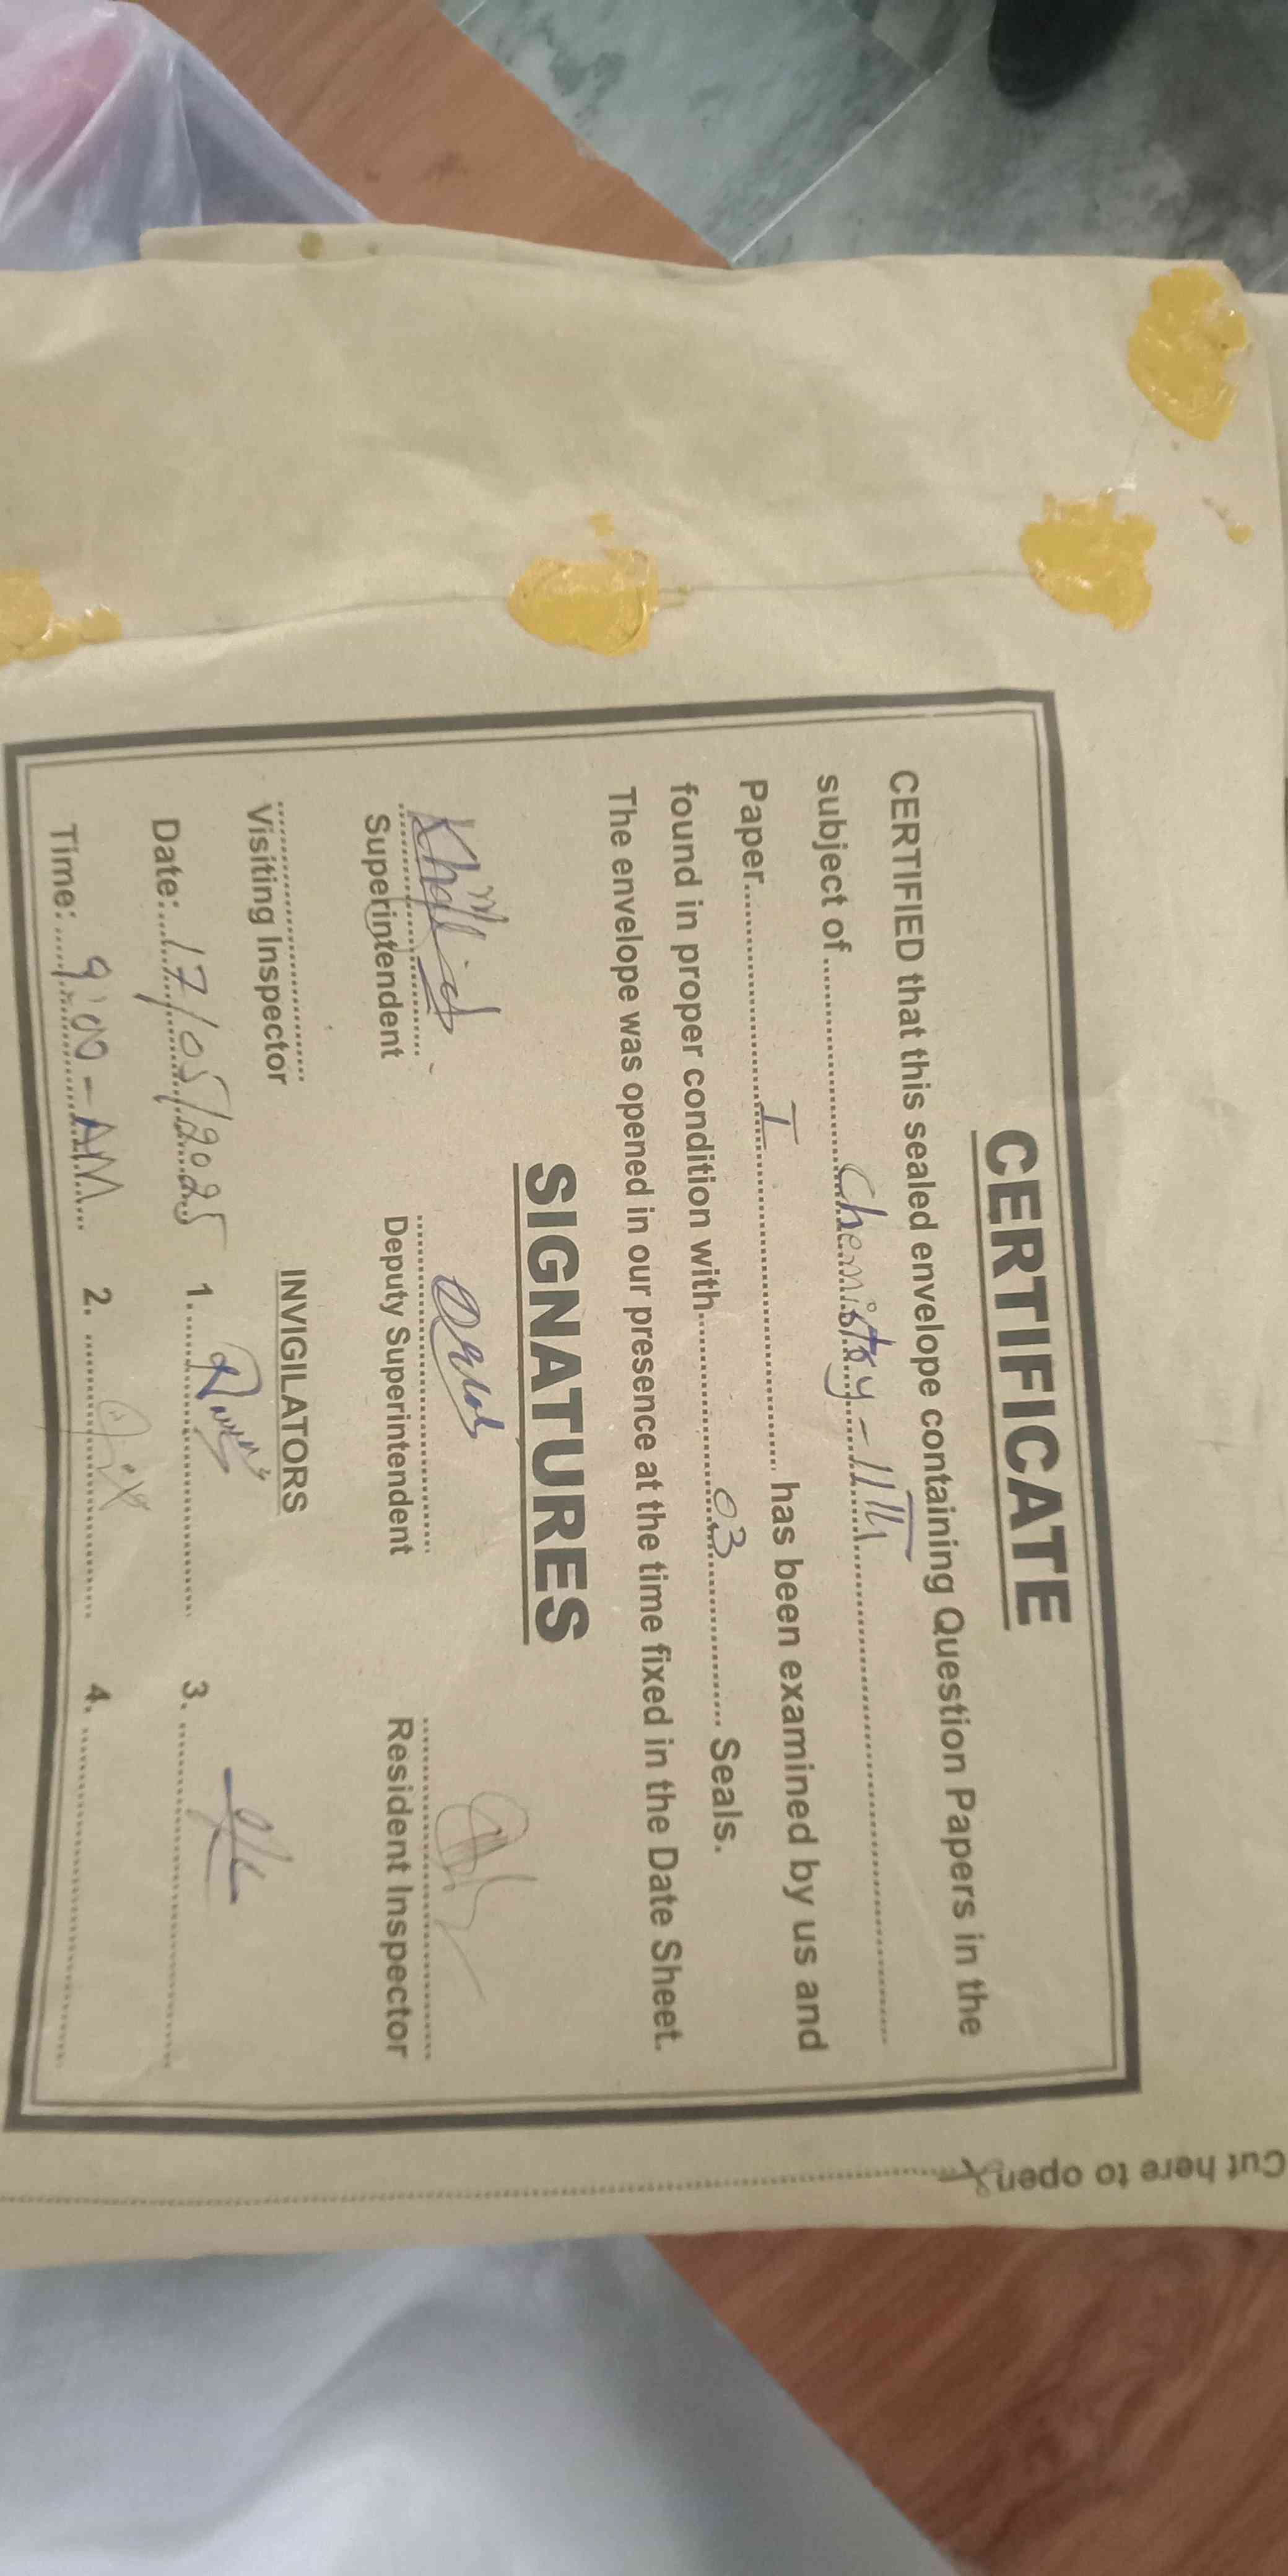 CERTIFICATE
CERTIFIED that this sealed envelope containing Question Papers in the
subject of Chemistry - 11th
Paper I has been examined by us and
found in proper condition with 03 Seals.
The envelope was opened in our presence at the time fixed in the Date Sheet.
SIGNATURES
Superintendent Deputy Superintendent Resident Inspector
Visiting Inspector
INVIGILATORS
Date: 17/05/2025 1. 3.
Time: 9:00 - AM 2. 4.
Cut here to open